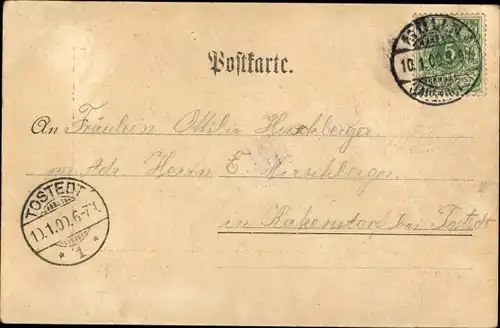 Postkarte.
5
10.1.00.
An Fräulein Ottilie Hirschberger
per Adr Herrn E. Hirschberger
in Kakenstorf bei Tostedt
TOSTEDT
10.1.00.6-7N.
* 1 *